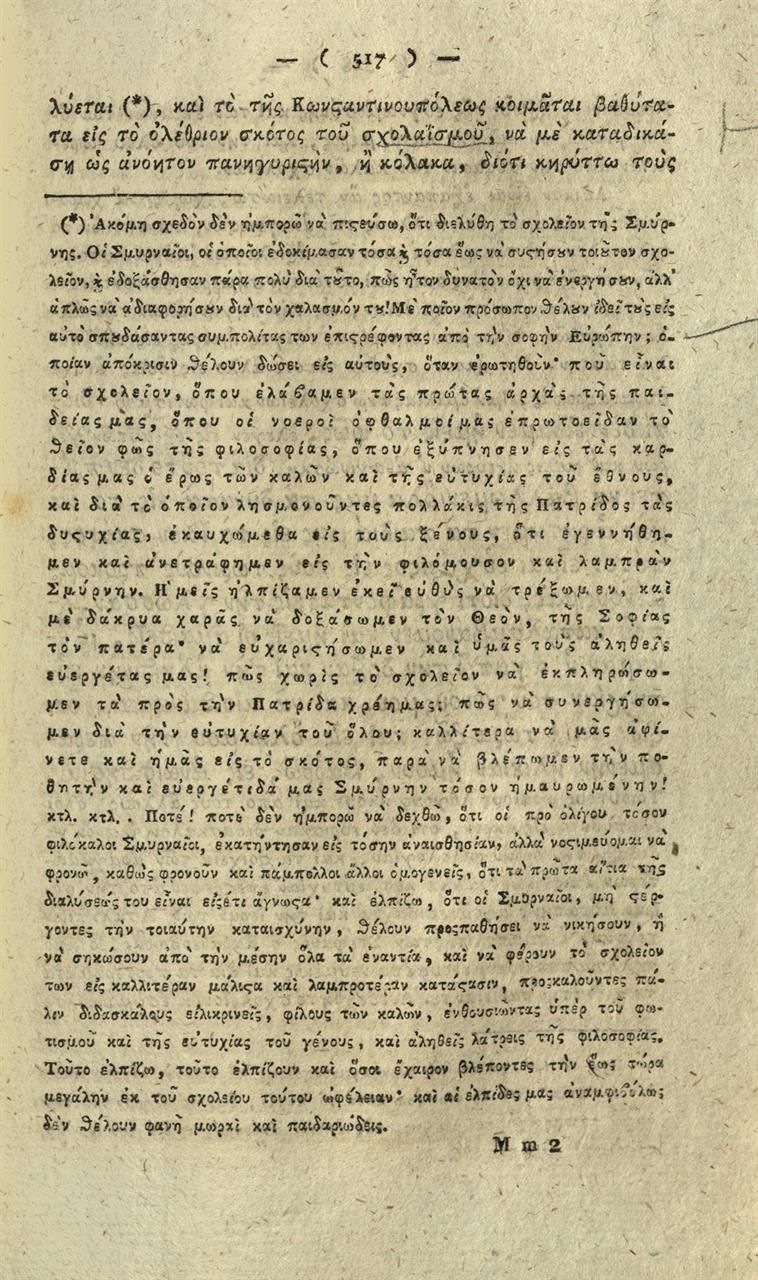 — ( 517 ) —
λύεται (*), καὶ τὸ τῆς Κωνϛαντινουπόλεως κοιμᾶται βαθύτα-
τα εἰς τὸ ὀλέθριον σκότος τοῦ σχολαϊσμοῦ, νὰ μὲ καταδικά-
σῃ ὡς ἀνόητον πανηγυριϛὴν, ἢ κόλακα, διότι κηρύττω τοὺς
(*) Ἀκόμη σχεδὸν δὲν ἠμπορῶ νὰ πιϛεύσω, ὅτι διελύθη τὸ σχολεῖον τῆς Σμύρ-
νης. Οἱ Σμυρναῖοι, οἱ ὁποῖοι ἐδοκίμασαν τόσα ϗ τόσα ἕως νὰ συϛήσȣν τοιȣ̃τον σχο-
λεῖον, ϗ ἐδοξάσθησαν πάρα πολὺ διὰ τȣ̃το, πῶς ἦτον δυνατὸν ὄχι νὰ ἐνεργήσȣν, ἀλλ'
ἁπλῶς νὰ ἀδιαφορήσȣν διὰ τὸν χαλασμόν τȣ! Μὲ ποῖον πρόσωπον θέλȣν ἰδεῖ τȣ̀ς εἰς
αὐτὸ σπȣδάσαντας συμπολίτας των ἐπιϛρέφοντας ἀπὸ τὴν σοφὴν Εὐρώπην; ὁ-
ποίαν ἀπόκρισιν θέλουν δώσει εἰς αὐτοὺς, ὅταν ἐρωτηθοῦν· ποῦ εἶναι
τὸ σχολεῖον, ὅπου ἐλάβαμεν τὰς πρώτας ἀρχὰς τῆς παι-
δείας μας, ὅπου οἱ νοεροὶ ὀφθαλμοί μας ἐπρωτοεῖδαν τὸ
θεῖον φῶς τῆς φιλοσοφίας, ὅπου ἐξύπνησεν εἰς τὰς καρ-
δίας μας ὁ ἔρως τῶν καλῶν καὶ τῆς εὐτυχίας τοῦ ἔθνους,
καὶ διὰ τὸ ὁποῖον λησμονοῦντες πολλάκις τῆς Πατρίδος τὰς
δυϛυχίας, ἐκαυχώμεθα εἰς τοὺς ξένους, ὅτι ἐγεννήθη-
μεν καὶ ἀνετράφημεν εἰς τὴν φιλόμουσον καὶ λαμπρὰν
Σμύρνην. Ἡμεῖς ἠλπίζαμεν ἐκεῖ εὐθὺς νὰ τρέξωμεν, καὶ
μὲ δάκρυα χαρᾶς νὰ δοξάσωμεν τὸν Θεὸν, τῆς Σοφίας
τὸν πατέρα· νὰ εὐχαριϛήσωμεν καὶ ὑμᾶς τοὺς ἀληθεῖς
εὐεργέτας μας! πῶς χωρὶς τὸ σχολεῖον νὰ ἐκπληρώσω-
μεν τὰ πρὸς τὴν Πατρίδα χρέη μας; πῶς νὰ συνεργήσω-
μεν διὰ τὴν εὐτυχίαν τοῦ ὅλου; καλλίτερα νὰ μᾶς ἀφί-
νετε καὶ ἡμᾶς εἰς τὸ σκότος, παρὰ νὰ βλέπωμεν τὴν πο-
θητὴν καὶ εὐεργέτιδά μας Σμύρνην τόσον ἠμαυρωμένην!
κτλ. κτλ.. Ποτὲ! ποτὲ δὲν ἠμπορῶ νὰ δεχθῶ, ὅτι οἱ πρὸ ὀλίγου τόσον
φιλόκαλοι Σμυρναῖοι, ἐκατήντησαν εἰς τόσην ἀναισθησίαν, ἀλλὰ νοϛιμεύομαι νὰ
φρονῶ, καθὼς φρονοῦν καὶ πάμπολλοι ἄλλοι ὁμογενεῖς, ὅτι τὰ πρῶτα αἴτια τῆς
διαλύσεώς του εἶναι εἰϛέτι ἄγνωϛα· καὶ ἐλπίζω, ὅτι οἱ Σμυρναῖοι, μὴ ϛέρ-
γοντες τὴν τοιαύτην καταισχύνην, θέλουν προσπαθήσει νὰ νικήσουν, ἢ
νὰ σηκώσουν ἀπὸ τὴν μέσην ὅλα τὰ ἐναντία, καὶ νὰ φέρουν τὸ σχολεῖον
των εἰς καλλιτέραν μάλιϛα καὶ λαμπροτέραν κατάϛασιν, προσκαλοῦντες πά-
λιν διδασκάλους εἰλικρινεῖς, φίλους τῶν καλῶν, ἐνθουσιῶντας ὑπὲρ τοῦ φω-
τισμοῦ καὶ τῆς εὐτυχίας τοῦ γένους, καὶ ἀληθεῖς λάτρεις τῆς φιλοσοφίας.
Τοῦτο ἐλπίζω, τοῦτο ἐλπίζουν καὶ ὅσοι ἔχαιρον βλέποντες τὴν ἕως τώρα
μεγάλην ἐκ τοῦ σχολείου τούτου ὠφέλειαν· καὶ αἱ ἐλπίδες μας ἀναμφιβόλως
δὲν θέλουν φανῆ μωραὶ καὶ παιδαριώδεις.
M m 2